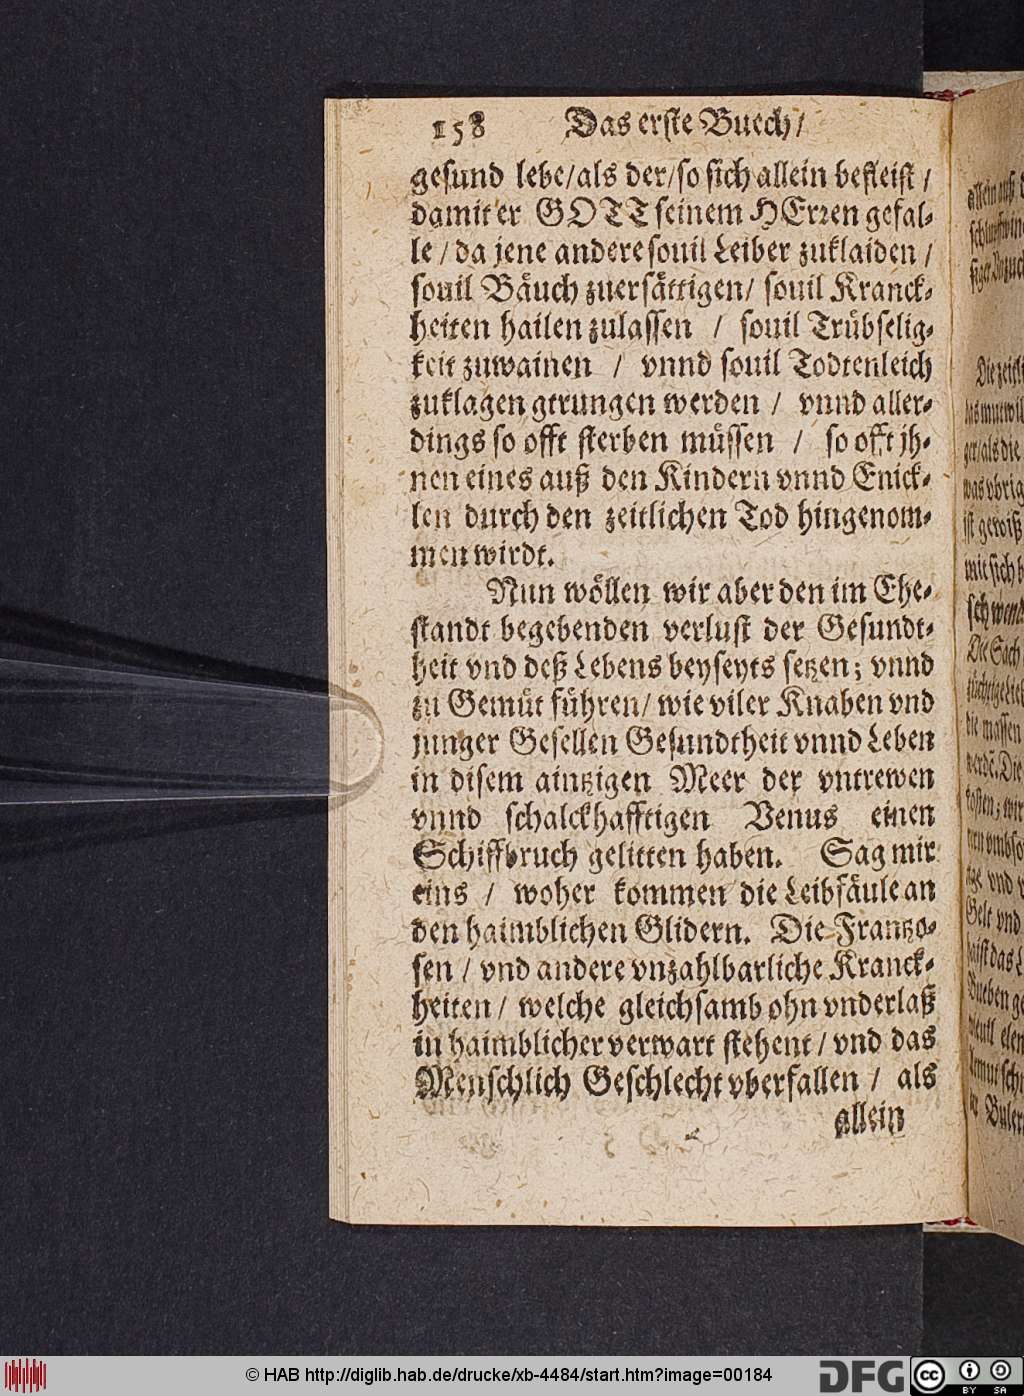 158 Das erste Buech/
gesund lebe/als der/so sich allein befleist /
damit er GOTT seinem HErren gefal-
le / da jene andere souil Leiber zuklaiden /
souil Bäuch zuersättigen/ souil Kranck-
heiten hailen zulassen / souil Trübselig-
keit zuwainen / vnnd souil Todtenleich
zuklagen getrungen werden / vnnd aller-
dings so offt sterben müssen / so offt jh-
nen eines auß den Kindern vnnd Enick-
len durch den zeitlichen Tod hingenom-
men wirdt.
Nun wöllen wir aber den im Ehe-
standt begebenden verlust der Gesundt-
heit vnd deß Lebens beyseyts setzen; vnnd
zu Gemüt führen/ wie viler Knaben vnd
junger Gesellen Gesundtheit vnnd Leben
in disem aintzigen Meer der vntrewen
vnnd schalckhafftigen Venus einen
Schiffbruch gelitten haben. Sag mir
eins / woher kommen die Leibfäule an
den haimblichen Glidern. Die Frantzo-
sen / vnd andere vnzahlbarliche Kranck-
heiten / welche gleichsamb ohn vnderlaß
in haimblicher verwart stehent / vnd das
Menschlich Geschlecht vberfallen / als
allein
© HAB http://diglib.hab.de/drucke/xb-4484/start.htm?image=00184
DFG
cc
BY SA